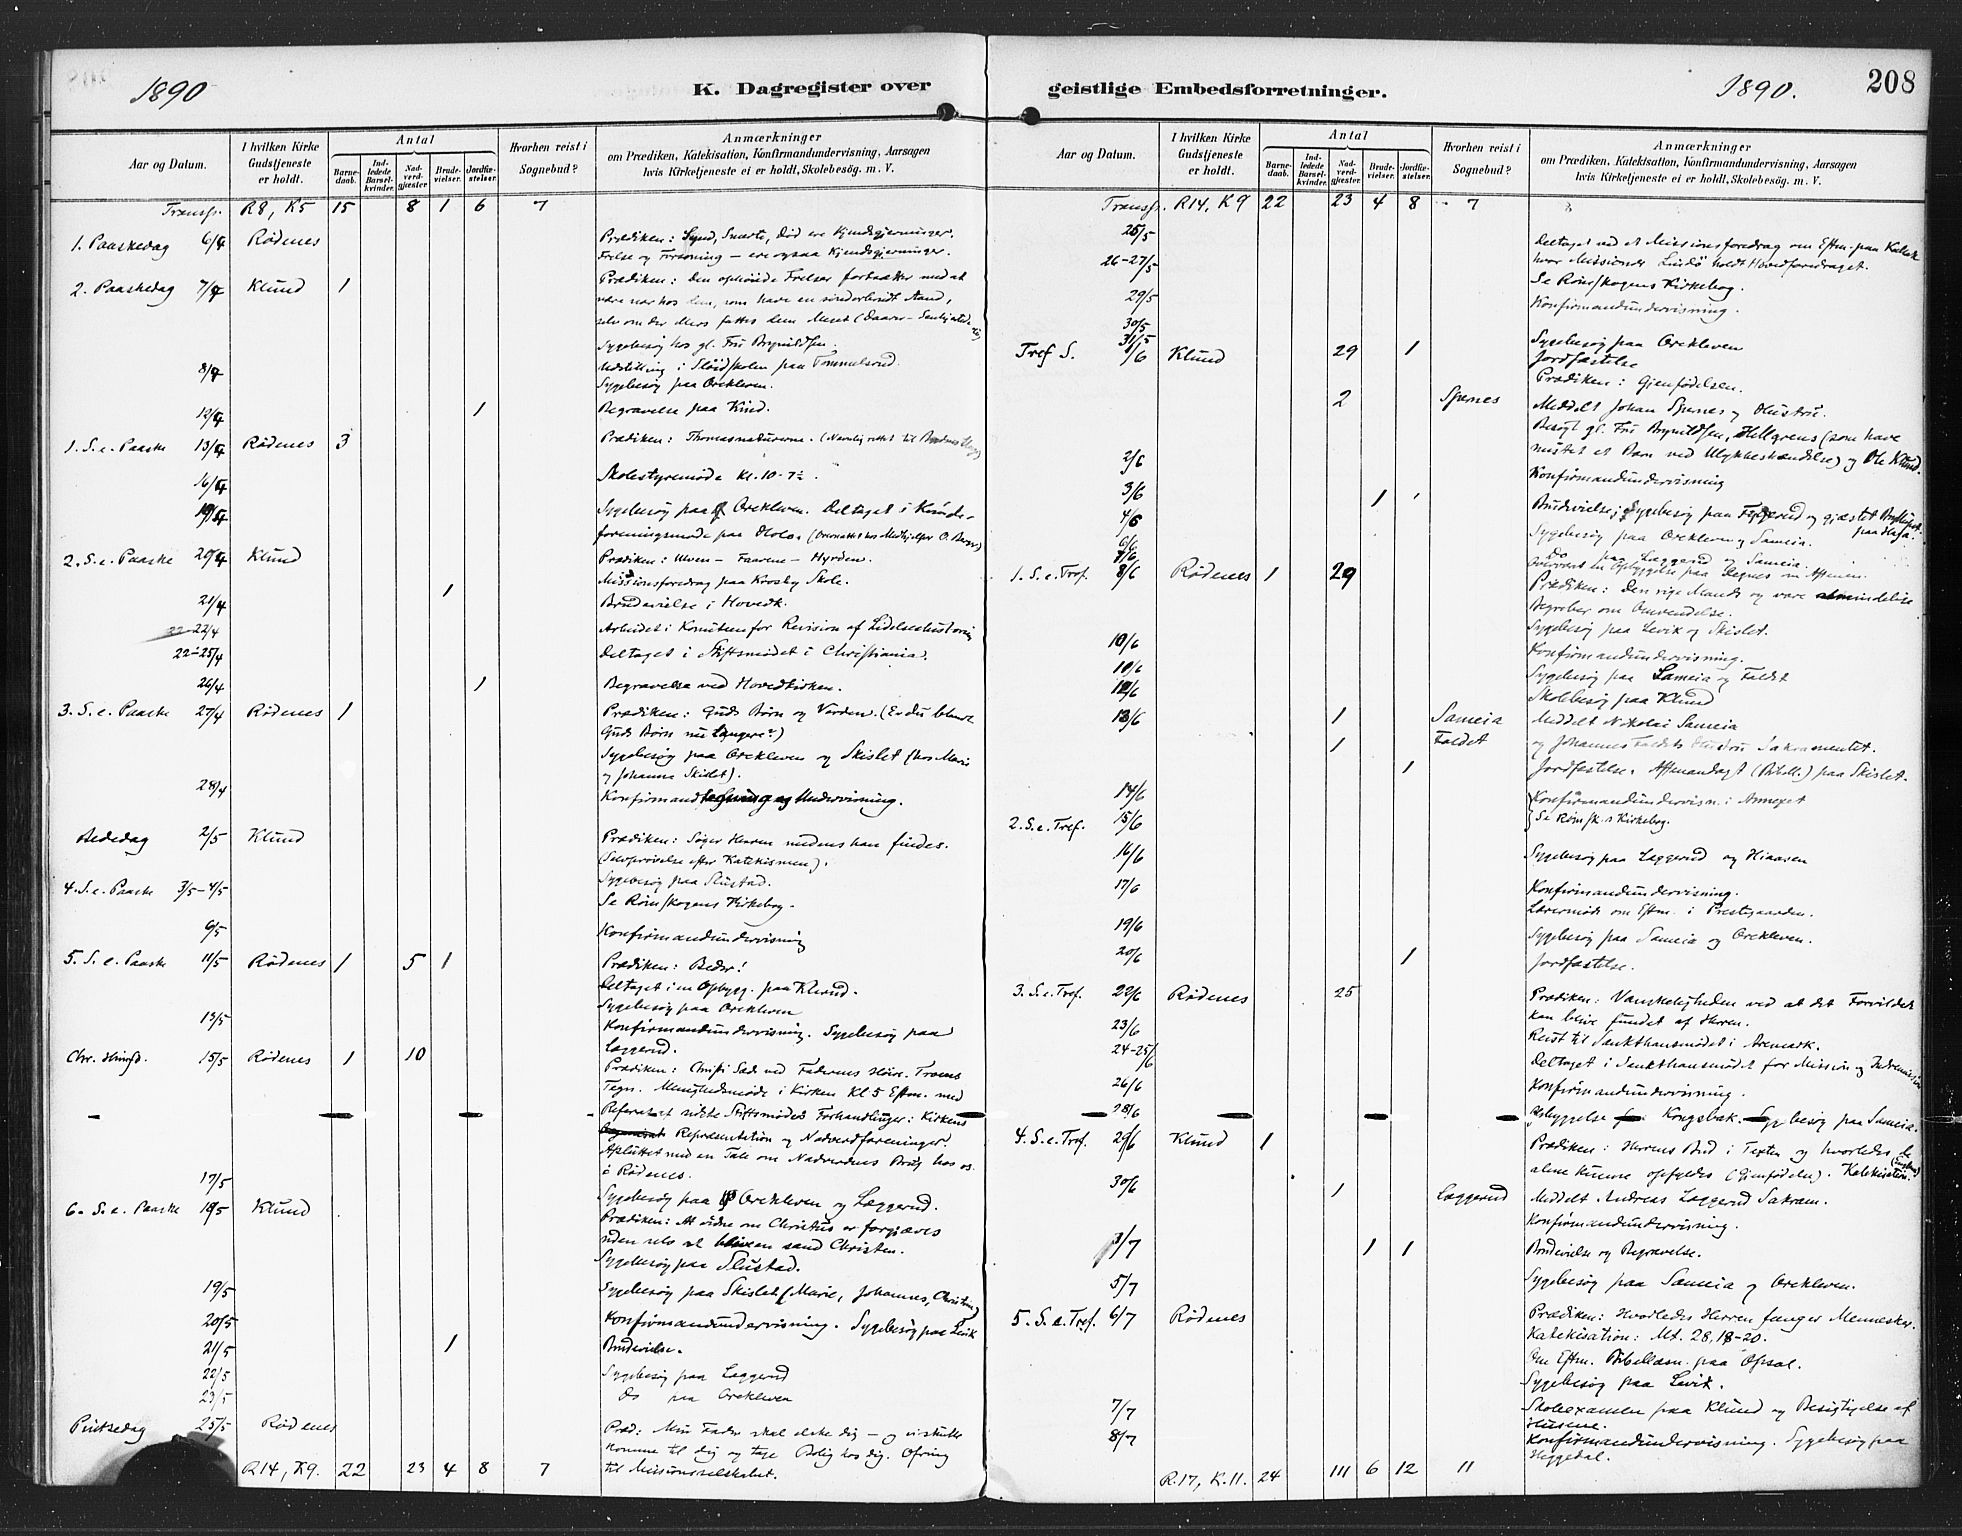 1890
K. Dagregister over
Aar og Datum.
I hvilken Kirke Gudstjeneste er holdt.
Antal
Barnedaab.
Indledede Barselkvinder.
Nadverdgjester
Brudevielser.
Jordfæstelser.
Hvorhen reist i Sognebud?
Anmærkninger
om Prædiken, Katekisation, Konfirmandundervisning, Aarsagen
hvis Kirketjeneste ei er holdt, Skolebesøg. m. V.
Transp. R8, K5 15 8 1 6 7
1. Paaskedag 6/4 Rødenes Prædiken: Synd, Smerte, Død ere Kjendsgjerninger.
Frelse og Forsoning – ere ogsaa Kjendsgjerninger.
2. Paaskedag 7/4 Klund 1 Prædiken: Den ophøiede Frelser fortsætter med at
være nær hos dem, som have en sønderbrudt Aand,
selv om der Mers fattes dem Meget
Sygebesøg hos gl. Fru Brynildsen.
8/4 Udstilling i Sløidskolen paa Tommelsrud.
Sygebesøg paa Orekleven.
12/4 1 Begravelse paa Kind.
1. S. e. Paaske 13/4 Rødenes 3 Prædiken: Thomasnaturerne.
16/4 Skolestyremøde Kl. 10 - 7½.
19/4 Sygebesøg paa Orekleven. Deltaget i Kvinde-
foreningsmøde paa
2. S. e. Paaske 20/4 Klund Prædiken: Ulven – Faarene – Hyrden.
Missionsforedrag paa Krosby Skole.
21/4 1 Brudevielse i Hovedk.
22/4 Arbeidet i Komiteen for Revision af Lidelseshistorien
22-25/4 Deltaget i Stiftsmødet i Christiania.
26/4 1 Begravelse ved Hovedkirken.
3. S. e. Paaske 27/4 Rødenes 1 Prædiken: Guds Børn og Verden. (Er du blandt
Guds Børn nu længere?)
Sygebesøg paa Orekleven og Skislet (hos Marie
og Johanna Skislet).
28/4 Konfirmand Undervisning.
Bededag 2/5 Klund Prædiken: Søger Herren medens han findes.
(Selvprøvelse efter Katekismen).
Sygebesøg paa Slustad.
4. S. e. Paaske 3/5-4/5 Se Rømskogens Kirkebog.
6/5 Konfirmandundervisning
5. S. e. Paaske 11/5 Rødenes 1 5 1 Prædiken: Beder!
Deltaget i en Opbygg. paa Klund.
Sygebesøg paa Orekleven
13/5 Konfirmandundervisning. Sygebesøg paa
Laggerud.
Chr. Himfd. 15/5 Rødenes 1 10 Prædiken: Christi Sæd ved Faderens Høire. Troens
Tegn. Menighedsmøde i Kirken Kl 5 Eftm. med
Referat at sidste Stiftsmødes Forhandlinger: Kirkens
Repræsentation og Nadverdforeninger.
Afsluttet med en Tale om Nadverdens Brug hos os
i Rødenes.
17/5 Sygebesøg paa Orekleven og Laggerud.
6. S. e. Paaske 18/5 Klund Prædiken: At vidne om Christus er forgjæves
uden selv at blive en sand Christen.
Sygebesøg paa Slustad.
19/5 Sygebesøg paa Skislet (Marie, Johannes, Christine)
20/5 Konfirmandundervisning. Sygebesøg paa Levik
21/5 1 Brudevielse.
22/5 Sygebesøg paa Laggerud
23/5 Do paa Orekleven
Pintsedag 25/5 Rødenes Præd: Min Fader skal elske dig – og vi skulle
komme til dig og tage Bolig hos dig. Ofring
til Missionsselskabet.
R14, K9. 22 23 4 8 7
geistlige Embedsforretninger.
1890.
208
Aar og Datum.
I hvilken Kirke Gudstjeneste er holdt.
Antal
Barnedaab.
Indledede Barselkvinder.
Nadverdgjester
Brudevielser.
Jordfæstelser.
Hvorhen reist i Sognebud?
Anmærkninger
om Prædiken, Katekisation, Konfirmandundervisning, Aarsagen
hvis Kirketjeneste ei er holdt, Skolebesøg. m. V.
Transp. R14, K9 22 23 4 8 7
25/5 Deltaget ved et Missionsforedrag om Eftm. paa
hvor Missionær Lindø holdt Hovedforedraget.
26-27/5 Se Rømskogens Kirkebog.
29/5 Konfirmandundervisning.
30/5 Sygebesøg paa Orekleven
31/5 1 Jordfæstelse
Tref S. 1/6 Klund 29 Prædiken: Gjenfødelsen.
2 Spernes Meddelt Johan Spernes og Hustru.
2/6 Besøgt gl. Fru Brynildsen, Hellgrens (som have
mistet et Barn ved Ulykkeshændelse) og Ole Klund.
3/6 Konfirmandundervisning
4/6 1 Brudevielse; Sygebesøg paa og gjæstet Bryllupet
6/6 Sygebesøg paa Orekleven og Sameia.
7/6 Do paa Laggerud og Sameia.
Overvært en Opbyggelse paa om Aftenen.
1. S. e. Tref. 8/6 Rødenes 1 29 Prædiken: Den rige Mands og vore almindelige
Begreber om Omvendelse.
Sygebesøg paa Levik og Skislet.
10/6 Konfirmandundervisning.
10/6 Sygebesøg paa Sameia og Faldet
12/6 Skolebesøg paa Klund
13/6 1 Sameia Meddelt Nikolai Sameia
1 Faldet og Johannes Faldets Hustru Sakramentet.
1 Jordfæstelse. Aftenandagt (Bibell.) paa Skislet.
14/6 Konfirmandundervisn. i Annexet
2. S. e. Tref. 15/6 Se Rømsk.s Kirkebog.
16/6 Sygebesøg paa Laggerud og Hiaasen
17/6 Konfirmandundervisning.
Lærermøde om Eftm. i Prestegaarden.
19/6 Sygebesøg paa Sameia og Orekleven.
20/6 1 Jordfæstelse.
3. S. e. Tref. 22/6 Rødenes 25 Prædiken: Vanskeligheden ved at det Forvildet
kan blive fundet af Herren.
23/6 Reist til Sankthansmødet i Aremark.
24-25/6 Deltaget i Sankthansmødet for Mission og Indremission
26/6 Konfirmandundervisning.
28/6 Opbyggelse Kongsbak. Sygebesøg paa Sameia.
4. S. e. Tref. 29/6 Klund 1 Prædiken: Herrens Bud i Texten og hvorledes de
alene kunne opfyldes (Gjenfødelsen). Katekisation.
30/6 1 Laggerud Meddelt Andreas Laggerud Sakram.
Konfirmandundervisning.
3/7 1 1 Brudevielse og Begravelse.
5/7 Sygebesøg paa Sameia og Orekleven.
5. S. e. Tref. 6/7 Rødenes Prædiken: Hvorledes Herren fanger Mennesker.
Katekisation: Mt. 28, 18-20.
Om Eftm. Bibellæsn. paa Opsal.
Sygebesøg paa Levik.
7/7 Skoleexamen paa Klund og Besigtigelse af
Husene.
8/7 Konfirmandundervisning. Sygebesøg paa
Heggedal.
R.17, K.11. 24 111 6 12 11